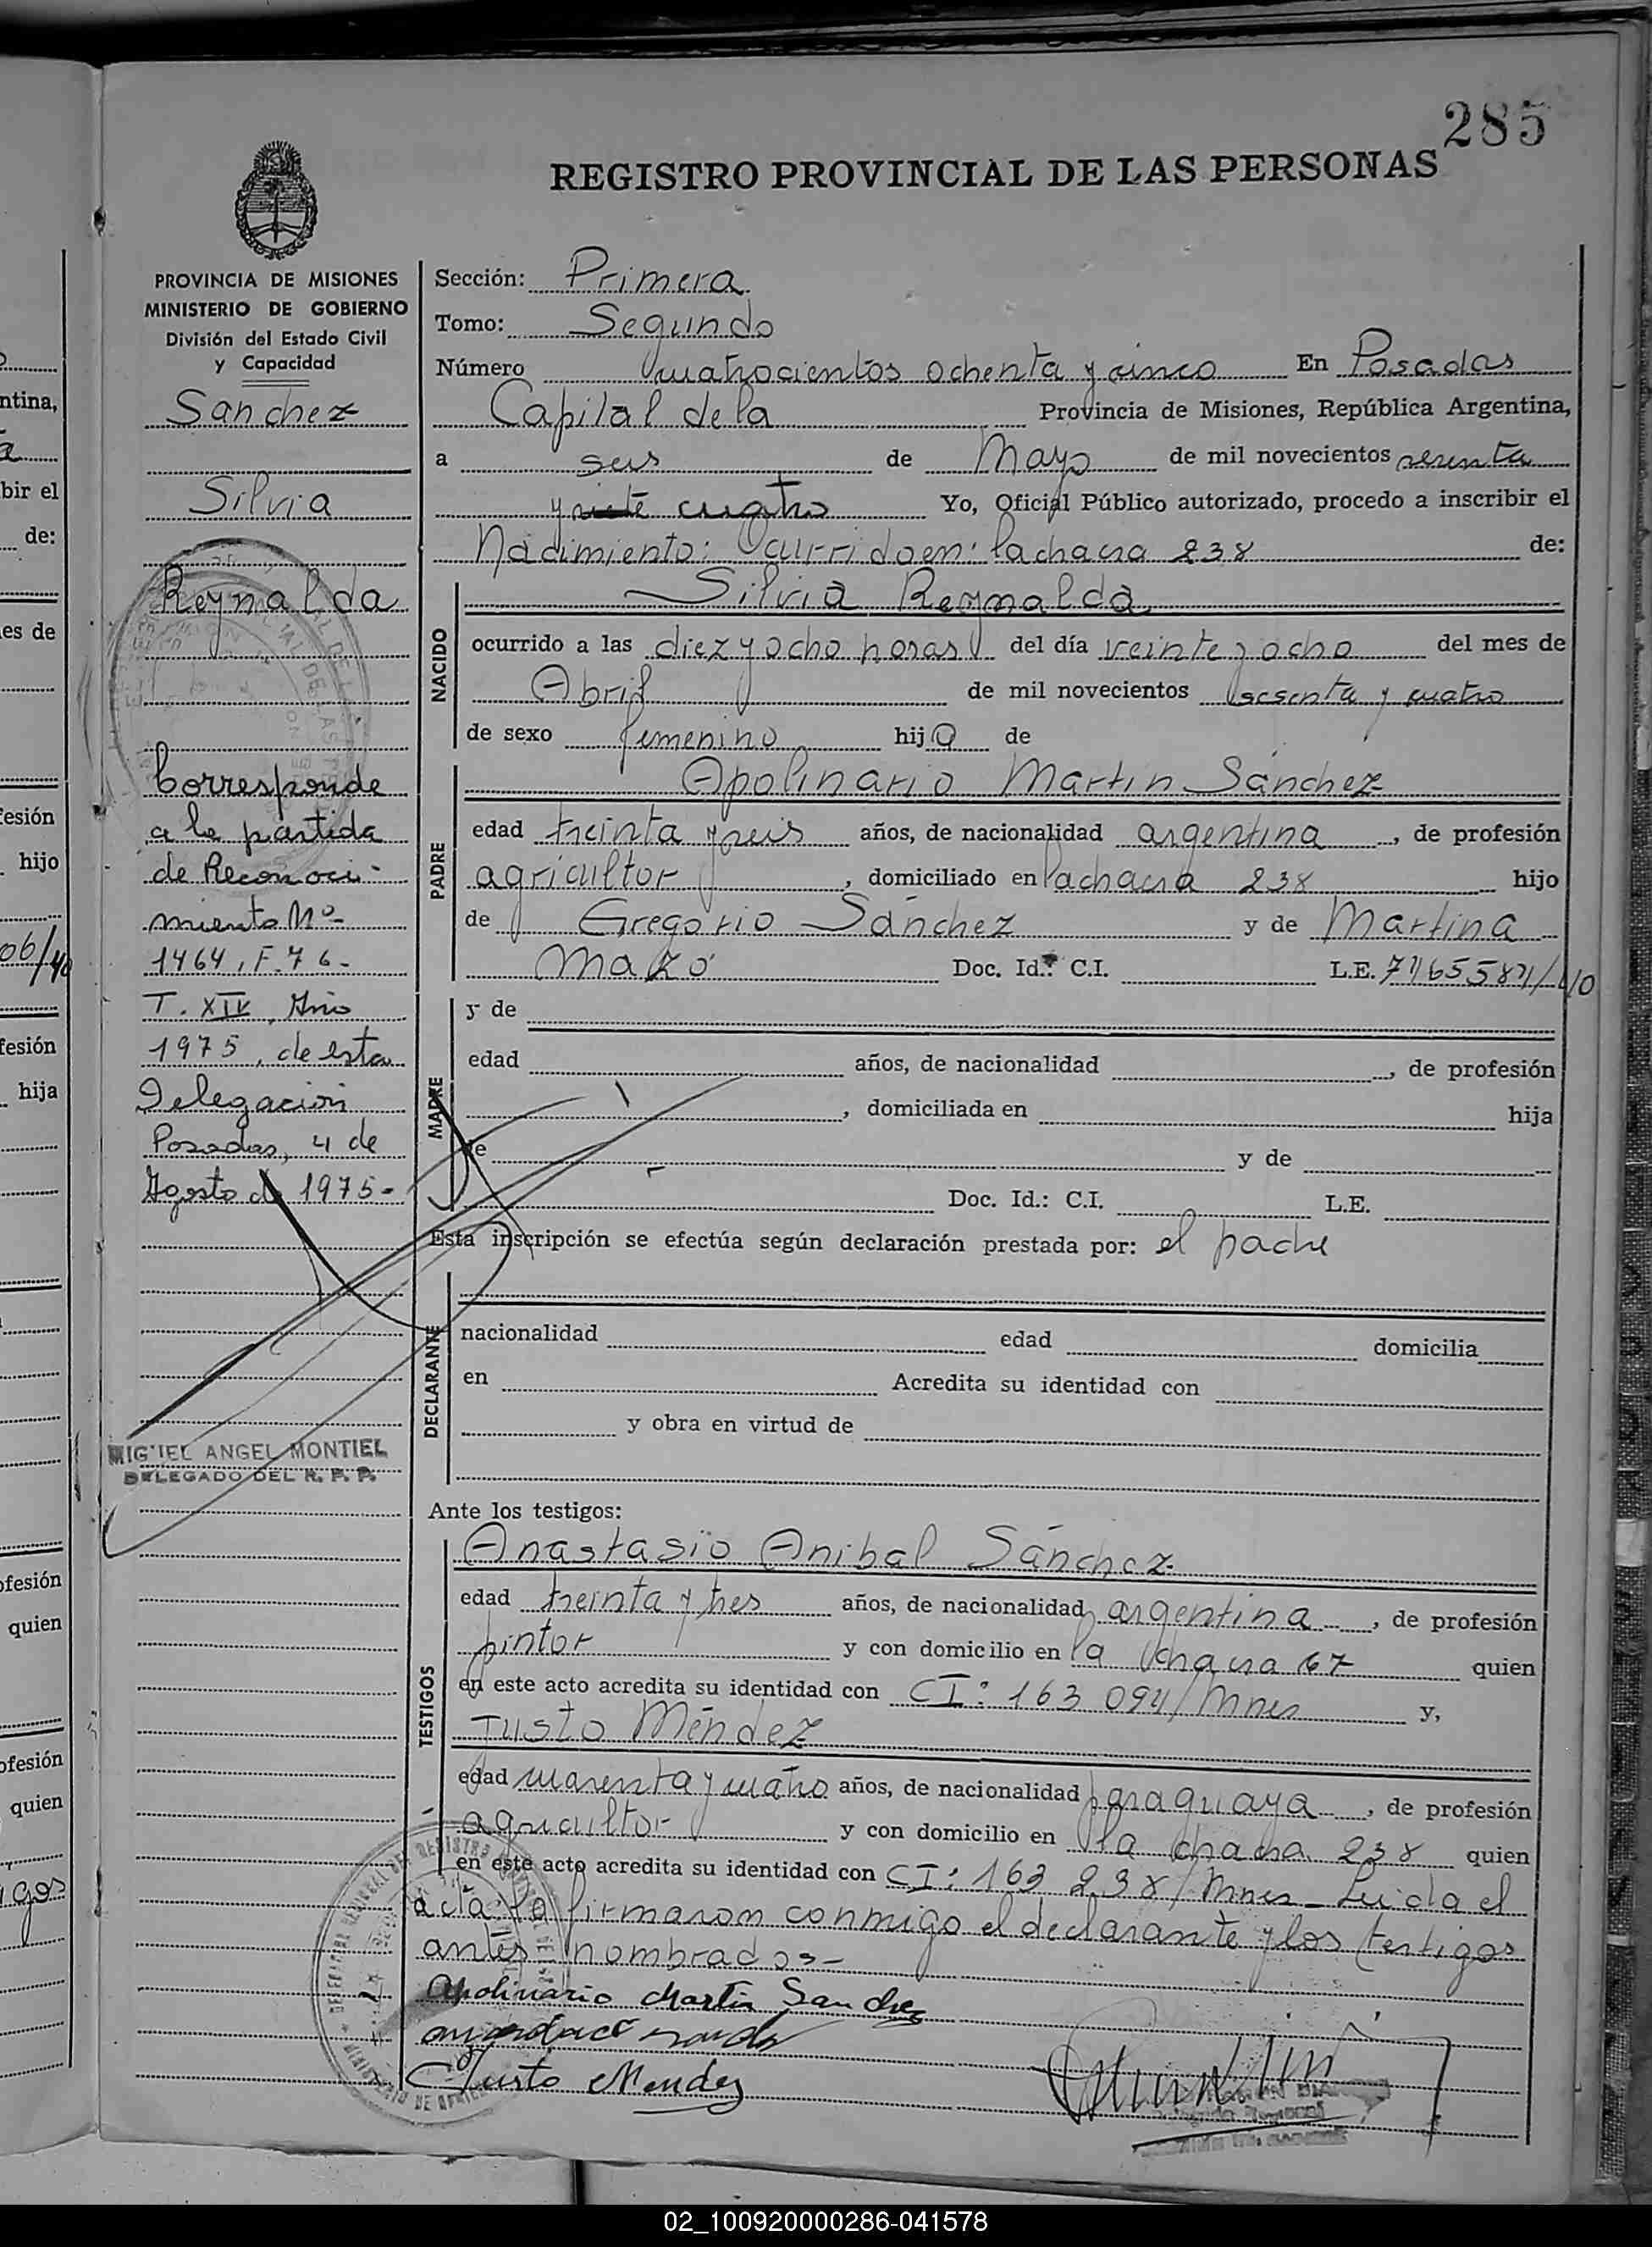 285
REGISTRO PROVINCIAL DE LAS PERSONAS
PROVINCIA DE MISIONES
MINISTERIO DE GOBIERNO
División del Estado Civil
y Capacidad
Sanchez
Silvia
Reynalda
Corresponde
a la partida
de Reconoci-
miento Nº
1464, F. 76-
T. XIV, Año
1975, de esta
Delegación
Posadas, 4 de
Agosto de 1975-
MIGUEL ANGEL MONTIEL
DELEGADO DEL R. P. P.
Sección: Primera
Tomo: Segundo
Número cuatrocientos ochenta y cinco En Posadas
Capital de la Provincia de Misiones, República Argentina,
a seis de Mayo de mil novecientos sesenta
y siete cuatro Yo, Oficial Público autorizado, procedo a inscribir el
Nacimiento: Ocurrido en: la chacra 238 de:
NACIDO
Silvia Reynalda
ocurrido a las diez y ocho horas del día veinte y ocho del mes de
Abril de mil novecientos sesenta y cuatro
de sexo femenino hija de
PADRE
Apolinario Martin Sánchez
edad treinta y seis años, de nacionalidad argentina, de profesión
agricultor, domiciliado en la chacra 238 hijo
de Gregorio Sánchez y de Martina
Mazó Doc. Id.: C.I. L.E.
MADRE
y de
edad años, de nacionalidad , de profesión
, domiciliada en hija
de y de
Doc. Id.: C.I. L.E.
Esta inscripción se efectúa según declaración prestada por: el padre
DECLARANTE
nacionalidad edad domicilia
en Acredita su identidad con
y obra en virtud de
Ante los testigos:
TESTIGOS
Anastasio Anibal Sánchez
edad treinta y tres años, de nacionalidad argentina, de profesión
pintor y con domicilio en la chacra 67 quien
en este acto acredita su identidad con CI: 163 094/Mnes y,
Justo Méndez
edad cuarenta y cuatro años, de nacionalidad paraguaya, de profesión
agricultor y con domicilio en la chacra 238 quien
en este acto acredita su identidad con CI: 163 238/Mnes- Leida el
acta la firmaron conmigo el declarante y los testigos
antes nombrados-
Apolinario Martin Sanchez
Justo Mendez
02_100920000286-041578